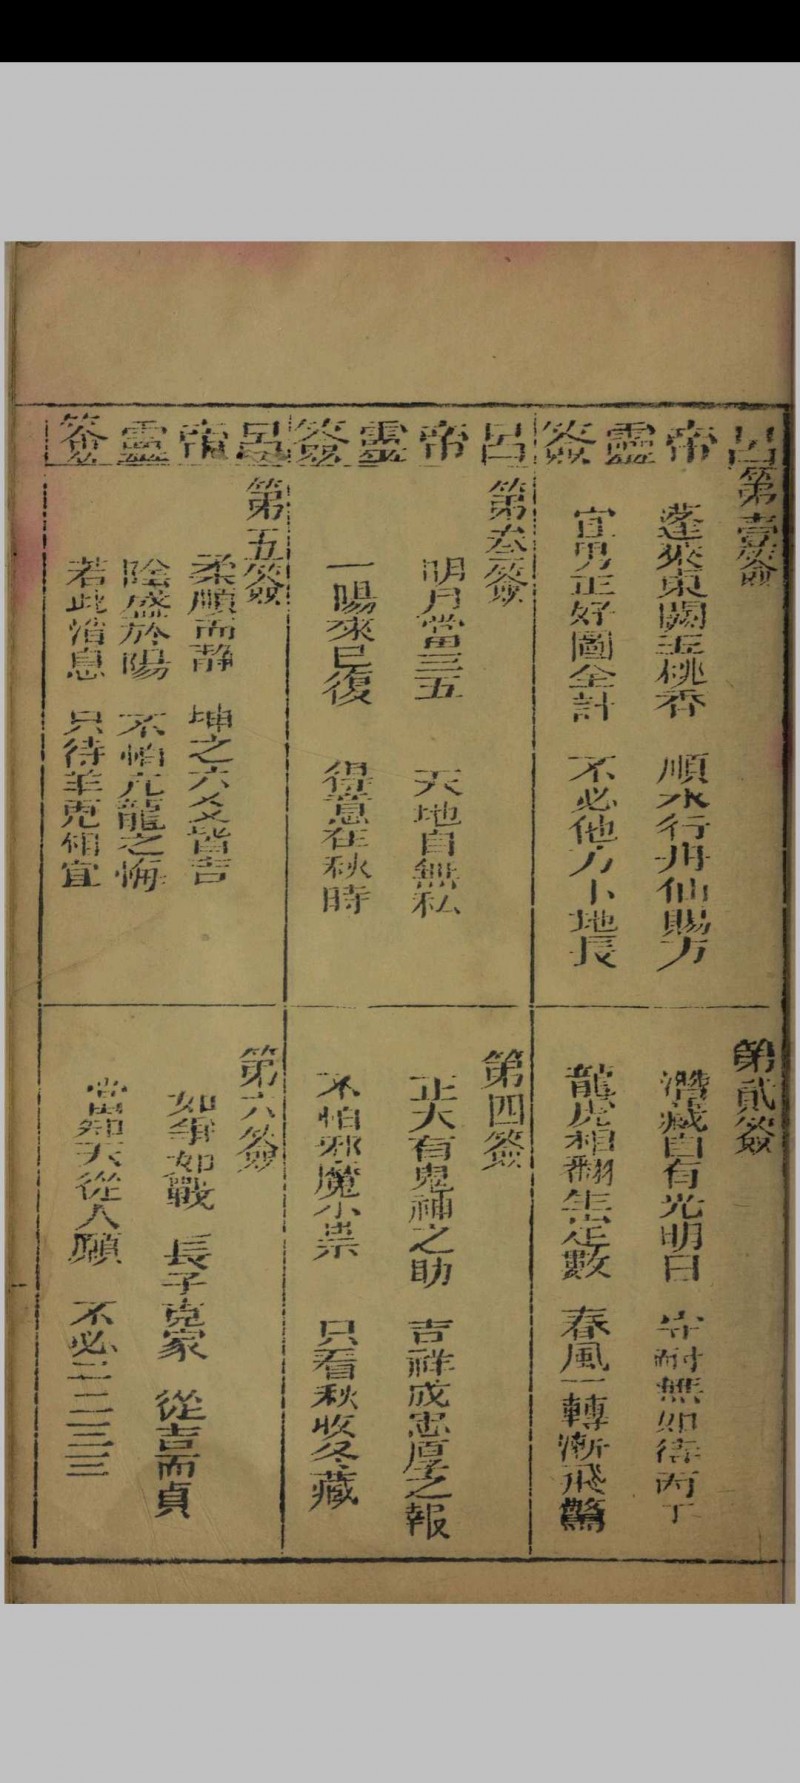 呂帝靈簽
第壹簽
蓬萊東闕玉桃香 順水行舟仙賜方
宜男正好圖全計 不必他方卜地長
第貳簽
潛藏自有光明日 守耐無如待丙丁
龍虎相翻生定數 春風一轉漸飛驚
呂帝靈簽
第叁簽
明月當三五 天地自無私
一陽來已復 得意在秋時
第四簽
正大有鬼神之助 吉祥成忠厚之報
不怕邪魔小祟 只看秋收冬藏
呂帝靈簽
第五簽
柔順而靜 坤之六爻皆吉
陰盛於陽 不怕亢龍之悔
若此消息 只待羊兎相宜
第六簽
如爭如戰 長子克家 從吉而貞
當知天從人願 不必二二三三